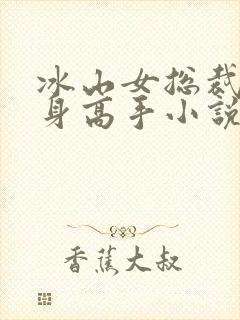 冰山女总裁
身高手小説
香蕉大叔